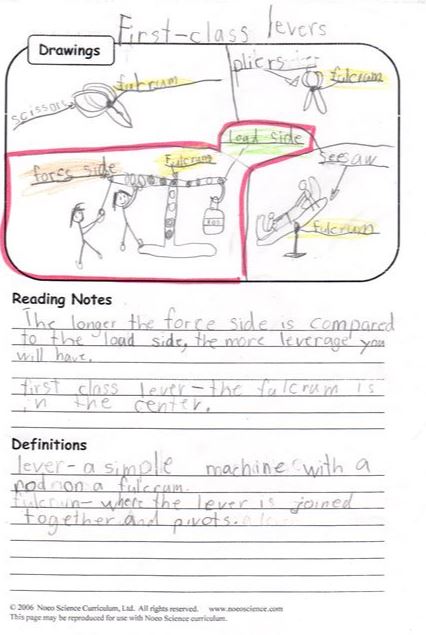 First-class levers
Drawings
scissors
fulcrum
pliers
fulcrum
load side
force side
Fulcrum
seesaw
fulcrum
Reading Notes
The longer the force side is compared
to the load side, the more leverage you
will have.
first class lever - the fulcrum is
in the center.
Definitions
lever - a simple machine with a
rod on a fulcrum.
fulcrum - where the lever is joined
together and pivots.
© 2006 Noeo Science Curriculum, Ltd. All rights reserved. www.noeoscience.com
This page may be reproduced for use with Noeo Science curriculum.